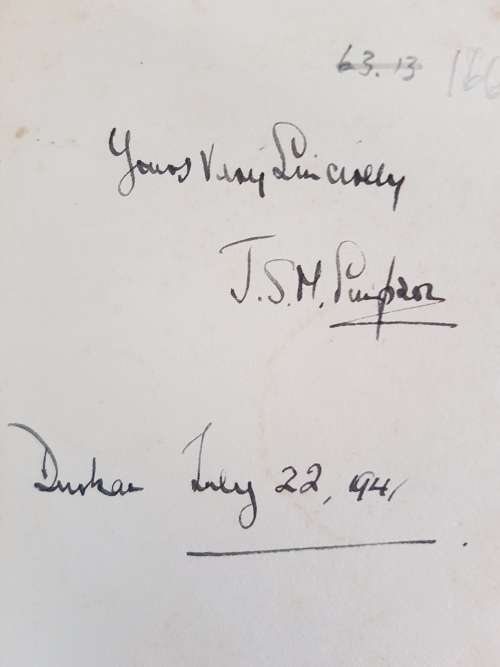 63.13 166
Yours Very Sincerely
J.S.M. Simpson
Durban July 22, 1941